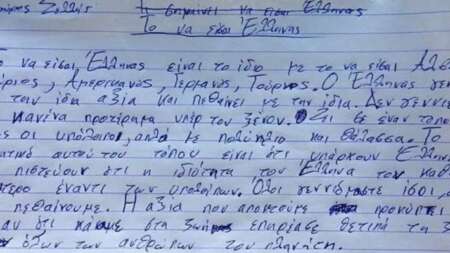 Τι σημαίνει να είσαι Έλληνας
Το να είσαι Έλληνας
Το να είσαι Έλληνας είναι το ίδιο με το να είσαι
Αμερικανός, Γερμανός, Τούρκος. Ο Έλληνας
την ίδια αξία και πεθαίνει με την ίδια. Δεν
κανένα προτέρημα υπέρ του ξένου. Ζει σε έναν τόπο
οι υπόλοιποι, αλλά με πολύ ήλιο και θάλασσα. Το
αυτού του τόπου είναι ότι υπάρχουν Έλληνες
πιστεύουν ότι η ιδιότητα του Έλληνα τον
έναντι των υπολοίπων. Όλοι γεννιόμαστε ίσοι,
πεθαίνουμε. Η αξία που αποκτούμε
αν ότι κάναμε στη ζωή μας επηρέασε θετικά τη
όλων των ανθρώπων του πλανήτη.